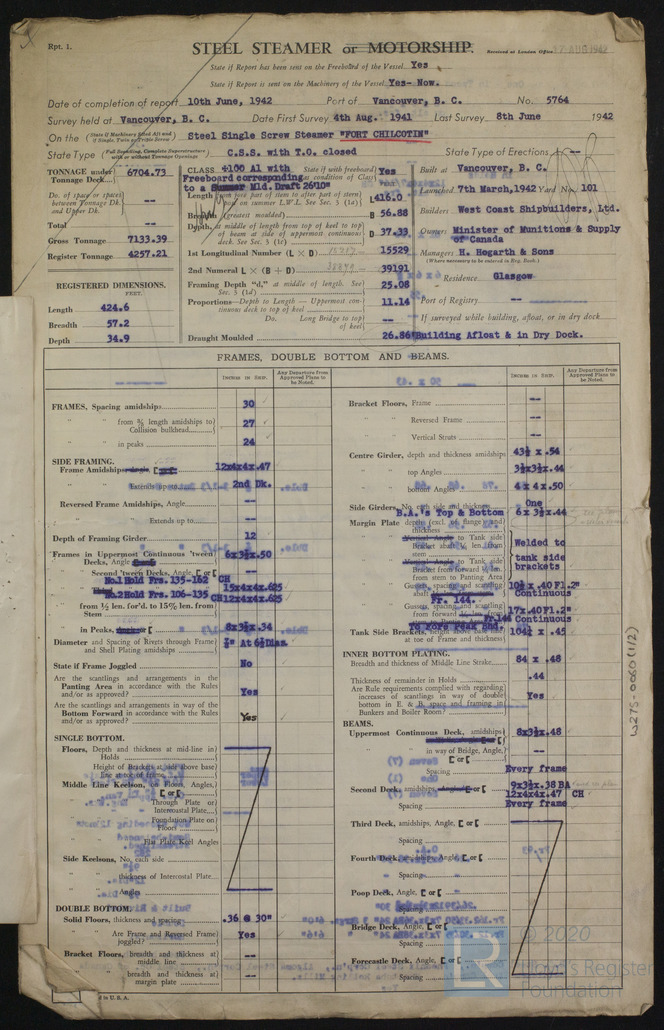 Rpt. 1.
STEEL STEAMER or MOTORSHIP.
Received at London Office 17 AUG 1942
State if Report has been sent on the Freeboard of the Vessel Yes
State if Report is sent on the Machinery of the Vessel Yes- Now.
Date of completion of report 10th June, 1942 Port of Vancouver, B. C. No. 5764
Survey held at Vancouver, B. C. Date First Survey 4th Aug. 1941 Last Survey 8th June 1942
On the (State if Machinery fitted Aft and if Single, Twin or Triple Screw) Steel Single Screw Steamer "FORT CHILCOTIN"
State Type (Full Scantling, Complete Superstructure with or without Tonnage Openings) C.S.S. with T.O. closed State Type of Erections --
TONNAGE under Tonnage Deck 6704.73
Do. of space or spaces between Tonnage Dk. and Upper Dk. --
Total --
Gross Tonnage 7133.39
Register Tonnage 4257.21
REGISTERED DIMENSIONS.
FEET.
Length 424.6
Breadth 57.2
Depth 34.9
CLASS +100 A1 with Freeboard corresponding to a Summer Mld. Draft 26'10"
State if with freeboard as condition of Class Yes
FEET
Length L 416.0
Breadth (greatest moulded) B 56.88
Depth, at middle of length from top of keel to top of beam at side of uppermost continuous deck. See Sec. 3 (1c) D 37.33
1st Longitudinal Number (L × D) 15529
2nd Numeral L × (B + D) 39191
Framing Depth "d," at middle of length. See Sec. 3 (1d) 25.08
Proportions—Depth to Length—Uppermost continuous deck to top of keel 11.14
Do. Long Bridge to top of keel --
Draught Moulded 26.86'
Built at Vancouver, B. C.
Launched 7th March, 1942 Yard No. 101
Builders West Coast Shipbuilders, Ltd.
Owners Minister of Munitions & Supply of Canada
Managers H. Hogarth & Sons
(Where necessary to be entered in Reg. Book.)
Residence Glasgow
Port of Registry --
If surveyed while building, afloat, or in dry dock
Building Afloat & in Dry Dock.
FRAMES, DOUBLE BOTTOM AND BEAMS.
INCHES IN SHIP.
Any Departure from Approved Plans to be Noted.
FRAMES, Spacing amidships 30
" " from ⅗ length amidships to Collision bulkhead 27
" " in peaks 24
SIDE FRAMING.
Frame Amidships 12x4x4x.47
" " Extends up to 2nd Dk.
Reversed Frame Amidships, Angle --
" " Extends up to --
Depth of Framing Girder 12
Frames in Uppermost Continuous 'tween Decks, Angle 6x3½x.50
" Second 'tween Decks, Angle, [ or [ --
No.1 Hold Frs. 135-162 CH 15x4x4x.625
No.2 Hold Frs. 106-135 CH 12x4x4x.625
" from ½ len. for'd. to 15% len. from Stem --
" in Peaks 8x3½x.34
Diameter and Spacing of Rivets through Frame and Shell Plating amidships ⅞" At 6½ Dias.
State if Frame Joggled No
Are the scantlings and arrangements in the Panting Area in accordance with the Rules and/or as approved? Yes
Are the scantlings and arrangements in way of the Bottom Forward in accordance with the Rules and/or as approved? Yes
SINGLE BOTTOM.
Floors, Depth and thickness at mid-line in Holds
Height of Brackets at side above base line at toe of frame
Middle Line Keelson, on Floors, Angles, [ or [
" " Through Plate or Intercostal Plate
" " Foundation Plate on Floors
" " Flat Plate Keel Angles
Side Keelsons, No. each side
" " thickness of Intercostal Plate
" " Angles
DOUBLE BOTTOM.
Solid Floors, thickness and spacing .36 @ 30"
" " Are Frame and Reversed Frame joggled? Yes
Bracket Floors, breadth and thickness at middle line --
" " breadth and thickness at margin plate --
Bracket Floors, Frame --
" " Reversed Frame --
" " Vertical Struts --
Centre Girder, depth and thickness amidships 43½ x .54
" " top Angles 3½x3½x.44
" " bottom Angles 4 x 4 x.50
Side Girders, No. each side and thickness One
B.A.'s Top & Bottom 6 x 3½x.44
Margin Plate depth (excl. of flange) and thickness
Vertical Angle to Tank side Bracket abaft ¼ len. from stem
Vertical Angle to Tank side Bracket from forward ¼ len. from stem to Panting Area
Welded to tank side brackets
Gussets, spacing and scantling abaft Fr. 144. 10½x .40 Fl.2" Continuous
Gussets, spacing and scantling from forward Fr.144 To Fore Peak Bhd. 17x.40 Fl.2" Continuous
Tank Side Brackets, height above base line at toe of Frame and thickness 104½ x .45
INNER BOTTOM PLATING.
Breadth and thickness of Middle Line Strake 84 x .48
Thickness of remainder in Holds .44
Are Rule requirements complied with regarding increases of scantlings in way of double bottom in E. & B. space and framing in Bunkers and Boiler Room? Yes
BEAMS.
Uppermost Continuous Deck, amidships 8x3½x.48
" " in way of Bridge, Angle, [ or [ --
Spacing Every frame
Second Deck, amidships, Angle, [ or [ 9x3½x.38 BA
12x4x4x.47 CH
Spacing Every frame
Third Deck, amidships, Angle, [ or [
Spacing
Fourth Deck, amidships, Angle, [ or [
Spacing
Poop Deck, Angle, [ or [
Spacing
Bridge Deck, Angle, [ or [
Spacing
Forecastle Deck, Angle, [ or [
Spacing
W275-0060 (1/2)
d in U.S.A.
LR
© 2020
Lloyd's Register
Foundation